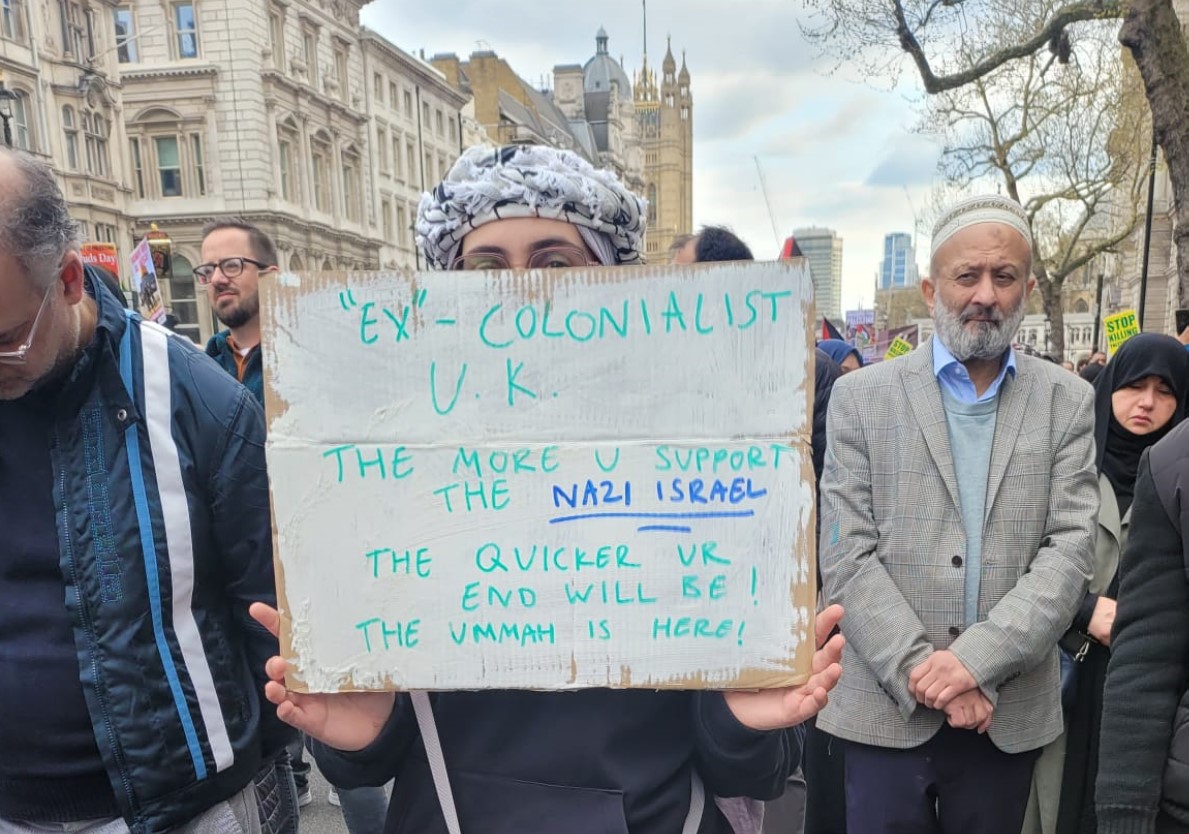 "EX" - COLONIALIST
U. K.
THE MORE U SUPPORT
THE NAZI ISRAEL
THE QUICKER UR
END WILL BE !
THE UMMAH IS HERE!
uds Day
STOP
STOP
KILLING